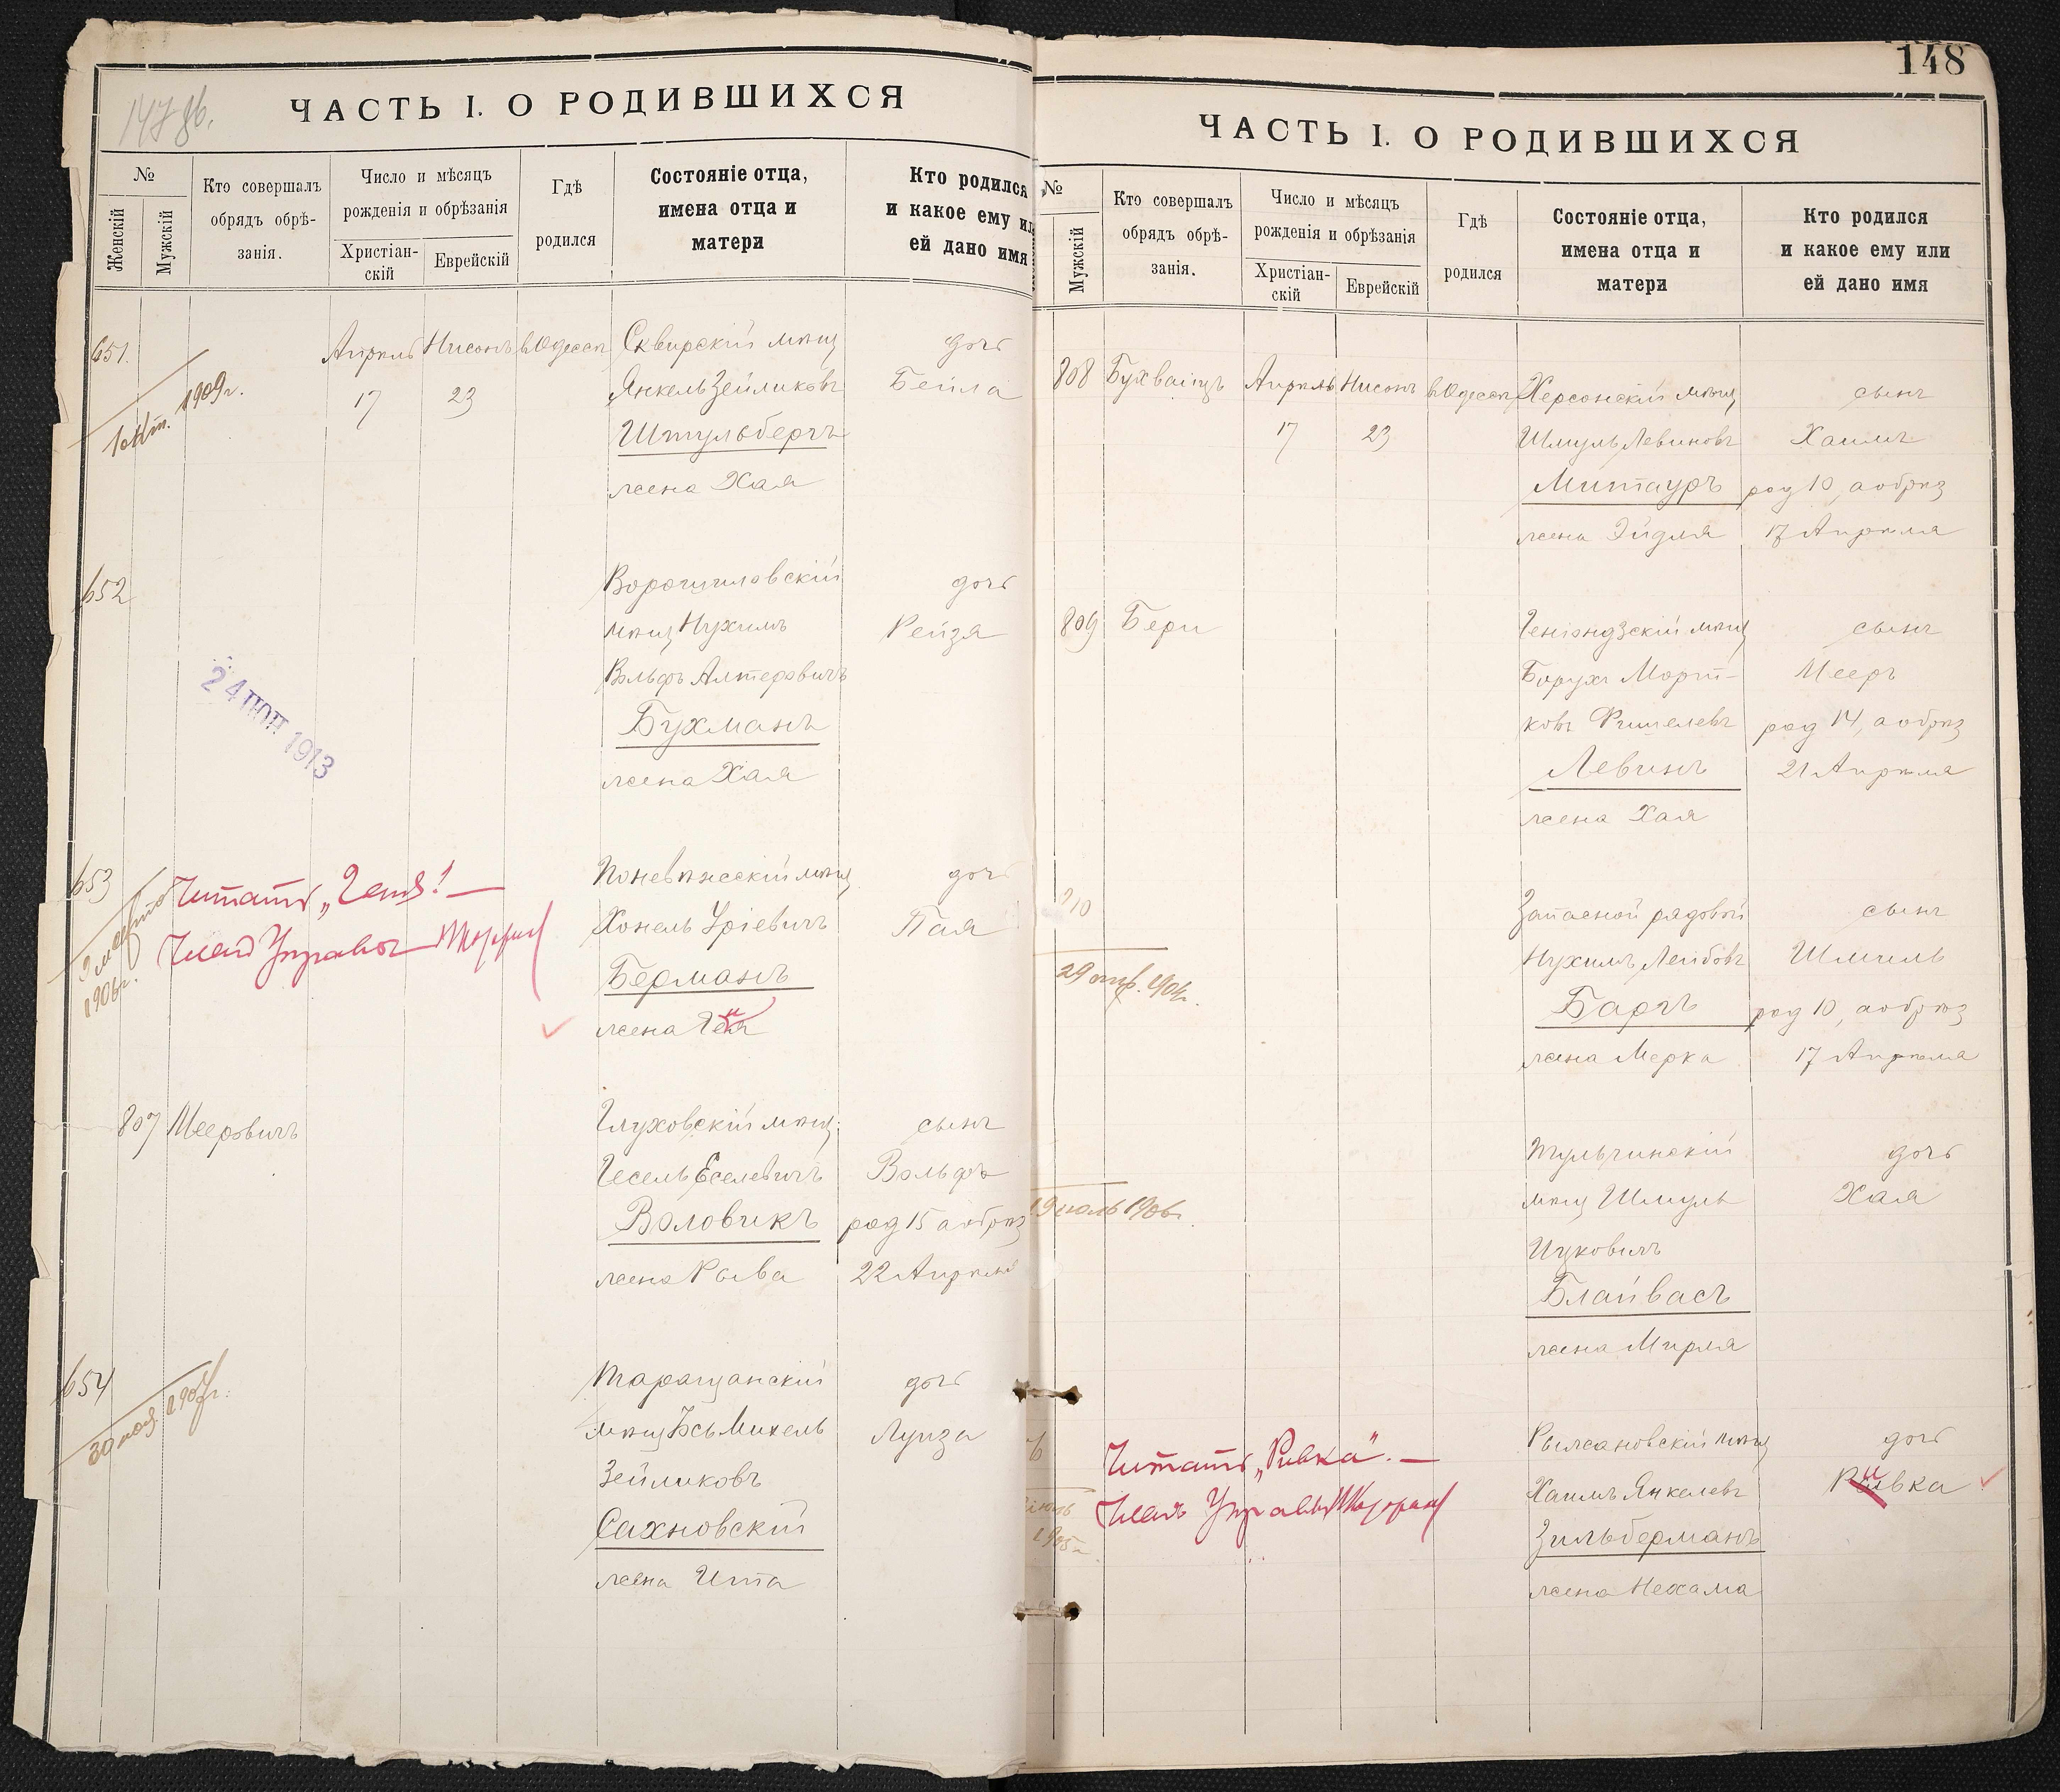 147 об.
ЧАСТЬ I. О РОДИВШИХСЯ
№
Женскій
Мужскій
Кто совершалъ
обрядъ обрѣ-
занія.
Число и мѣсяцъ
рожденія и обрѣзанія
Христіан-
скій
Еврейскій
Гдѣ
родился
Состояніе отца,
имена отца и
матери
Кто родился
и какое ему или
ей дано имя
651.
Апрѣль Нисонъ в Одессѣ
17 23
1909 г.
Сквирскій мѣщ
Янкель Зейликовъ
Штульбергъ
жена Хая
дочь
Бейла
652
мѣщ Нухимъ
Вольфъ Алтеровичъ
Бухманъ
жена Хая
дочь
Рейза
24 ІЮН 1913
653
1906 г.
Читать „Геня“. —
Членъ Управы
Поневѣжескій мѣщ
Хонель Уріевичъ
Берманъ
жена Геня
дочь
Пая
807 Мееровичъ
Глуховскій мѣщ.
Гесель Еселевичъ
Воловикъ
жена Рыва
сынъ
Вольфъ
род 15 а обрѣз
22 Апрѣля
654
30 1907 г.
Таращанскій
мѣщ Іось Михель
Зейликовъ
Сахновскій
жена Ита
дочь
Луиза
148
ЧАСТЬ I. О РОДИВШИХСЯ
№
Мужскій
Кто совершалъ
обрядъ обрѣ-
занія.
Число и мѣсяцъ
рожденія и обрѣзанія
Христіан-
скій
Еврейскій
Гдѣ
родился
Состояніе отца,
имена отца и
матери
Кто родился
и какое ему или
ей дано имя
808 Бухвайцъ Апрѣль Нисонъ в Одессѣ
17 23
Херсонскій мѣщ
Шмуль Левиновъ
Митауръ
жена Эйдля
сынъ
Хаимъ
род 10, а обрѣз
17 Апрѣля
809 Бери
Геніондзскій мѣщ
Борухъ Морт-
ковъ Фишелевъ
Левинъ
жена Хая
сынъ
Мееръ
род 14, а обрѣз
21 Апрѣля
810
Запасной рядовой
Нухимъ Лейбовъ
Баргъ
жена Мерка
сынъ
Шмиль
род 10, а обрѣз
17 Апрѣля
19 іюль 1906 г.
Тульчинскій
мѣщ Шмуль
Ицковичъ
Блайвасъ
жена Мирля
дочь
Хая
Читать „Ривка“. —
Членъ Управы
Рыжановскій мѣщ
Хаимъ Янкелевъ
Зильберманъ
жена Нехама
дочь
Ривка